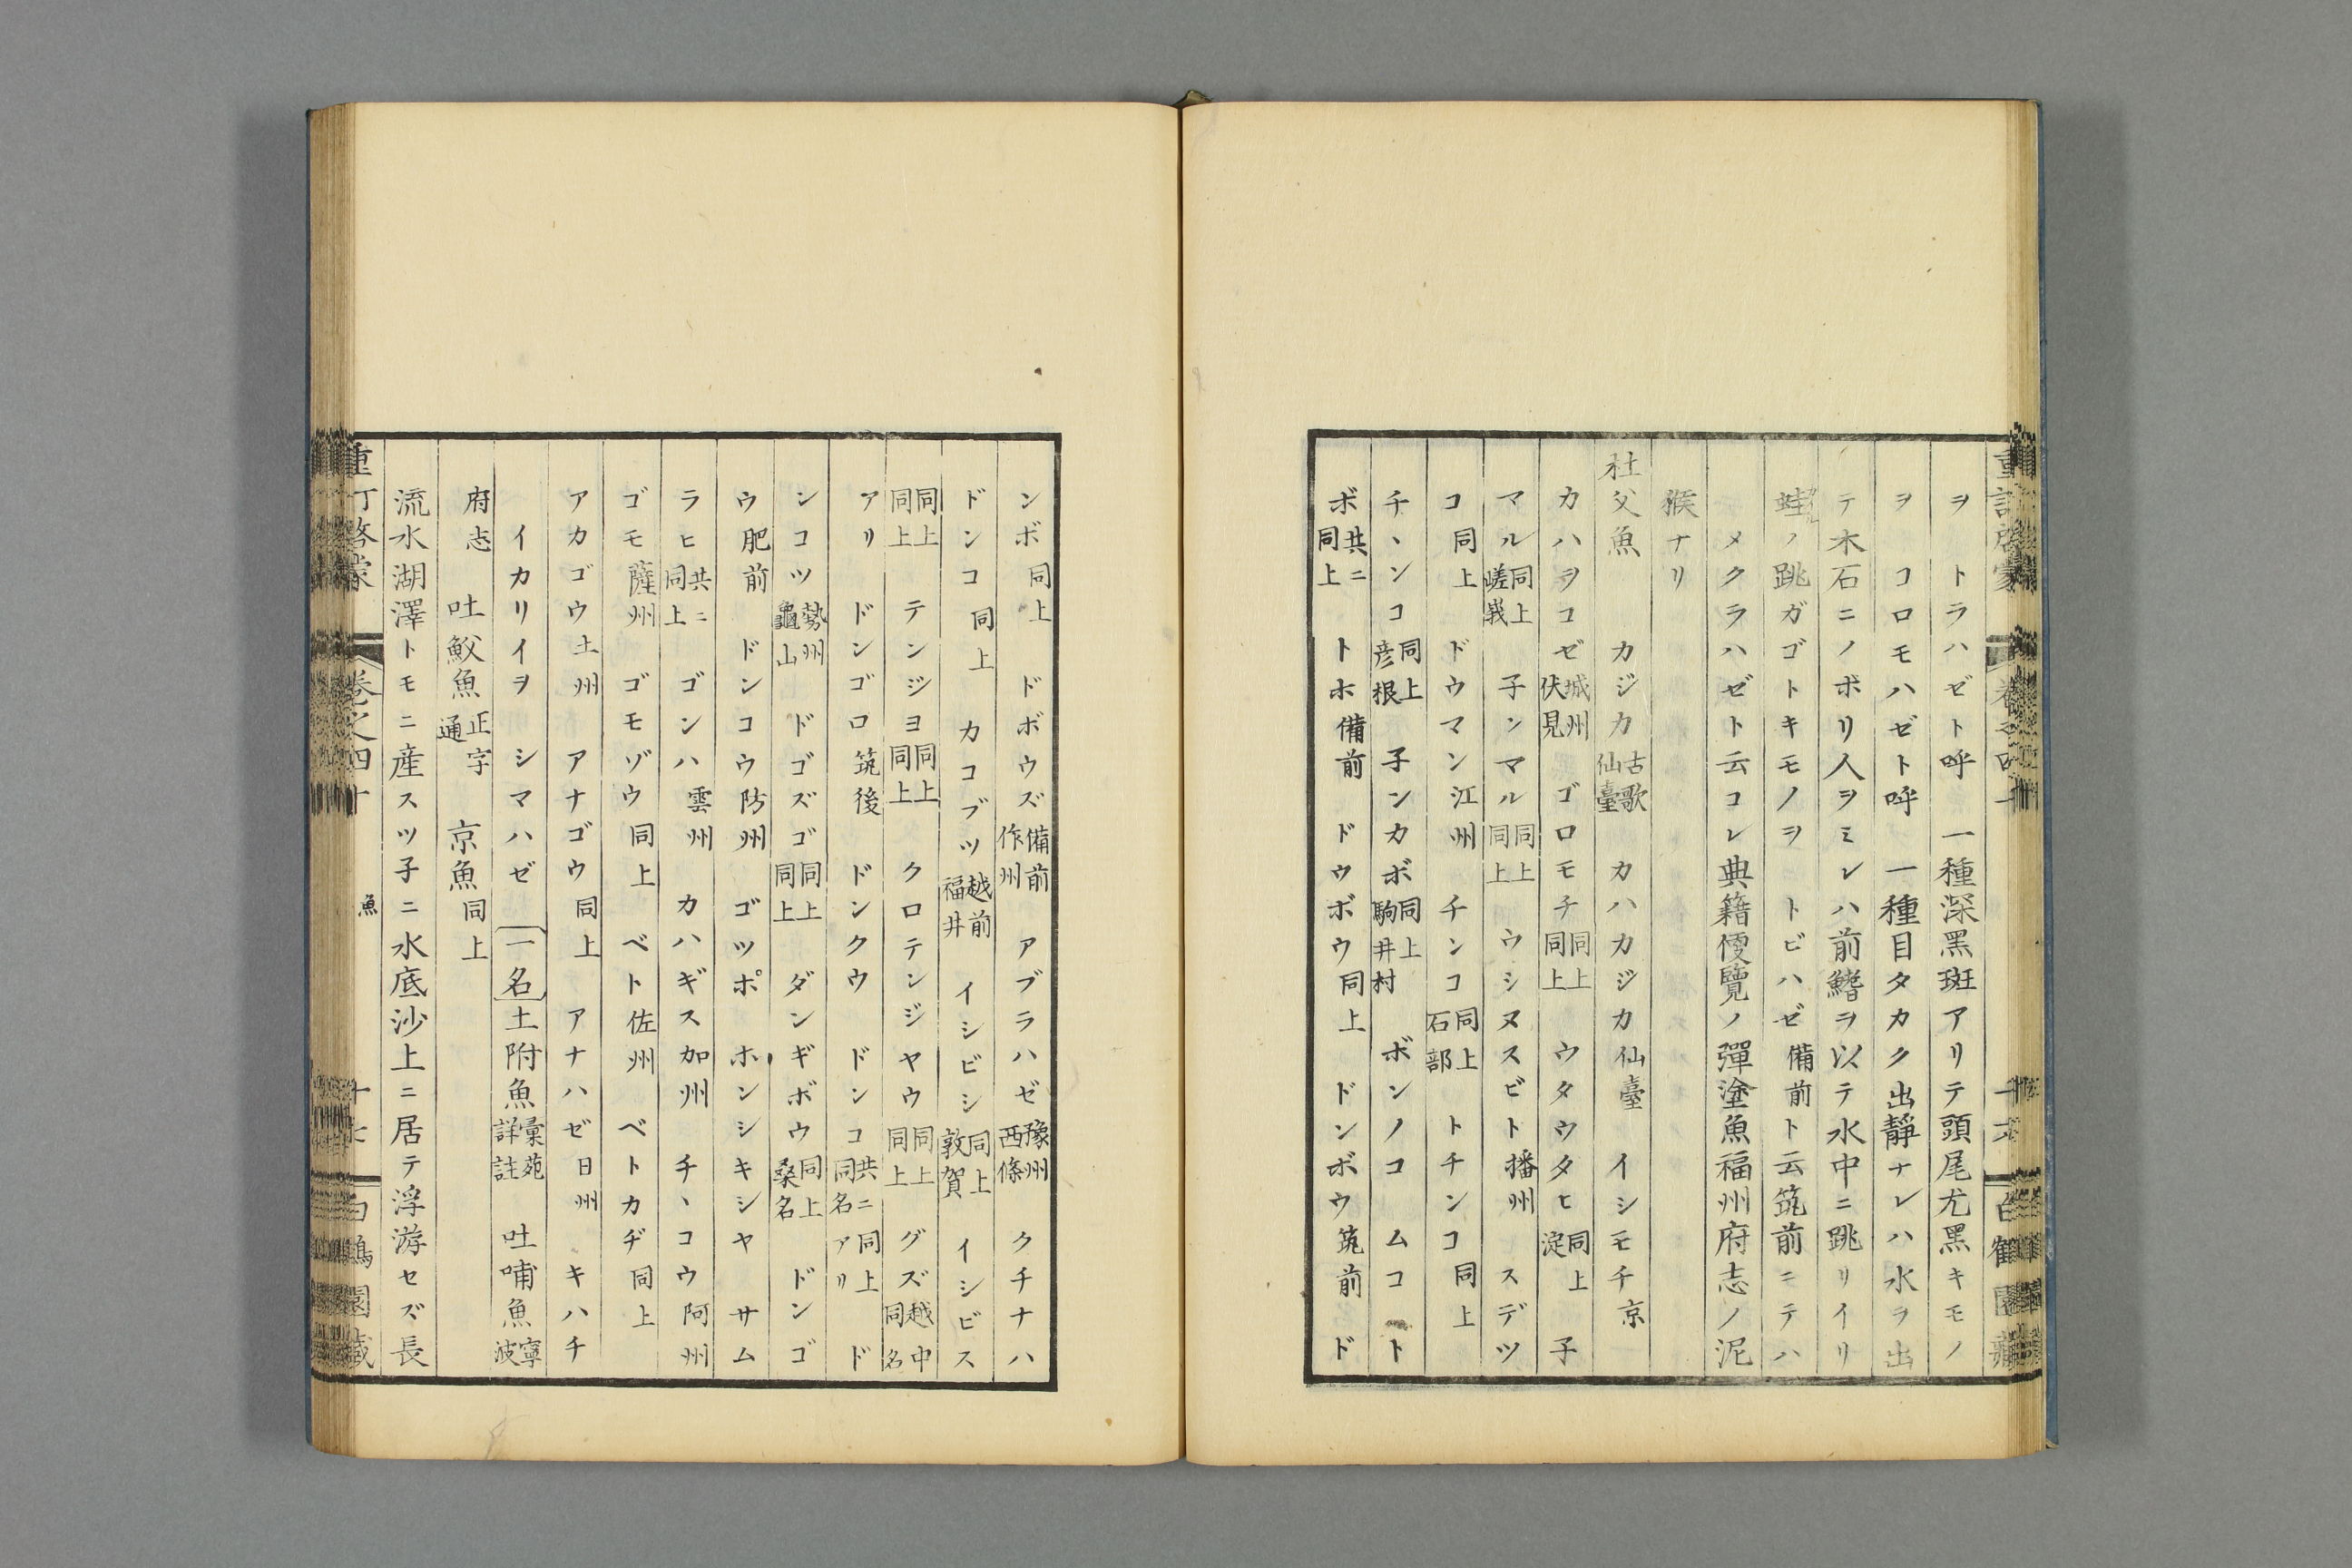 ヲトラハゼト呼一種深黑斑アリテ頭尾尤黑キモノ
ヲコロモハゼト呼一種目タカク出靜ナレハ水ヲ出
テ木石ニノボリ人ヲミレハ前鰭ヲ以テ水中ニ跳リイリ
蛙ノ跳ガゴトキモノヲトビハゼ備前ト云筑前ニテハ
メクラハゼト云コレ典籍便覽ノ彈塗魚福州府志ノ泥
猴ナリ
杜父魚 カジカ古歌仙臺 カハカジカ仙臺 イシモチ京
カハヲコゼ城州伏見 ゴロモチ同上同上 ウタウタヒ同上淀 子
マル同上嵯峩 子ンマル同上同上 ウシヌスビト播州 スデツ
コ同上 ドウマン江州 チンコ同上石部 トチンコ同上
チヽンコ同上彦根 子ンカボ同上駒井村 ボンノコ ムコ ト
ボ共ニ同上 トホ備前 ドウボウ同上 ドンボウ筑前 ド
ンボ同上 ドボウズ備前作州 アブラハゼ豫州西條 クチナハ
ドンコ同上 カコブツ越前福井 イシビシ同上敦賀 イシビス
同上同上 テンジヨ同上同上 クロテンジヤウ同上同上 グズ越中同名
アリ ドンゴロ筑後 ドンクウ ドンコ共ニ同上同名アリ ド
ンコツ勢州龜山 ドゴズゴ同上同上 ダンギボウ同上桑名 ドンゴ
ウ肥前 ドンコウ防州 ゴツポ ホンシキシヤ サム
ラヒ共ニ同上 ゴンハ雲州 カハギス加州 チヽコウ阿州
ゴモ薩州 ゴモゾウ同上 ベト佐州 ベトカヂ同上
アカゴウ土州 アナゴウ同上 アナハゼ日州 キハチ
イカリイヲ シマハゼ 一名土附魚彙苑詳註 吐哺魚寧波
府志 吐鮫魚正字通 京魚同上
流水湖澤トモニ産スツ子ニ水底沙上ニ居テ浮游セズ長
卷之四十 魚